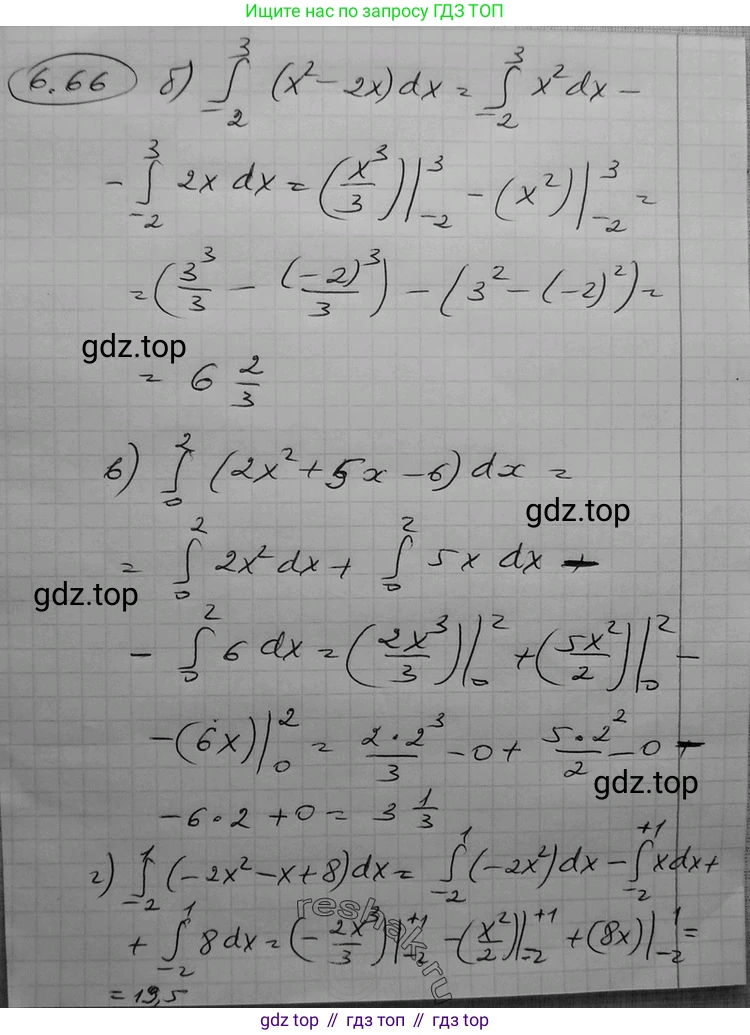 Ищите нас по запросу ГДЗ ТОП
6.66 б) ∫₋₂³ (x² − 2x) dx = ∫₋₂³ x² dx −
− ∫₋₂³ 2x dx = (x³/3)|₋₂³ − (x²)|₋₂³ =
= (3³/3 − (−2)³/3) − (3² − (−2)²) =
gdz.top
= 6 2/3
в) ∫₀² (2x² + 5x − 6) dx =
gdz.top
= ∫₀² 2x² dx + ∫₀² 5x dx −
gdz.top
− ∫₀² 6 dx = (2x³/3)|₀² + (5x²/2)|₀² −
− (6x)|₀² = 2·2³/3 − 0 + 5·2²/2 − 0 −
gdz.top
− 6·2 + 0 = 3 1/3
г) ∫₋₂¹ (−2x² − x + 8) dx = ∫₋₂¹ (−2x²) dx − ∫₋₂⁺¹ x dx +
+ ∫₋₂¹ 8 dx = (− 2x³/3)|₋₂⁺¹ − (x²/2)|₋₂⁺¹ + (8x)|₋₂¹ =
= 19,5
reshak.ru
gdz top // гдз топ // gdz top // гдз top